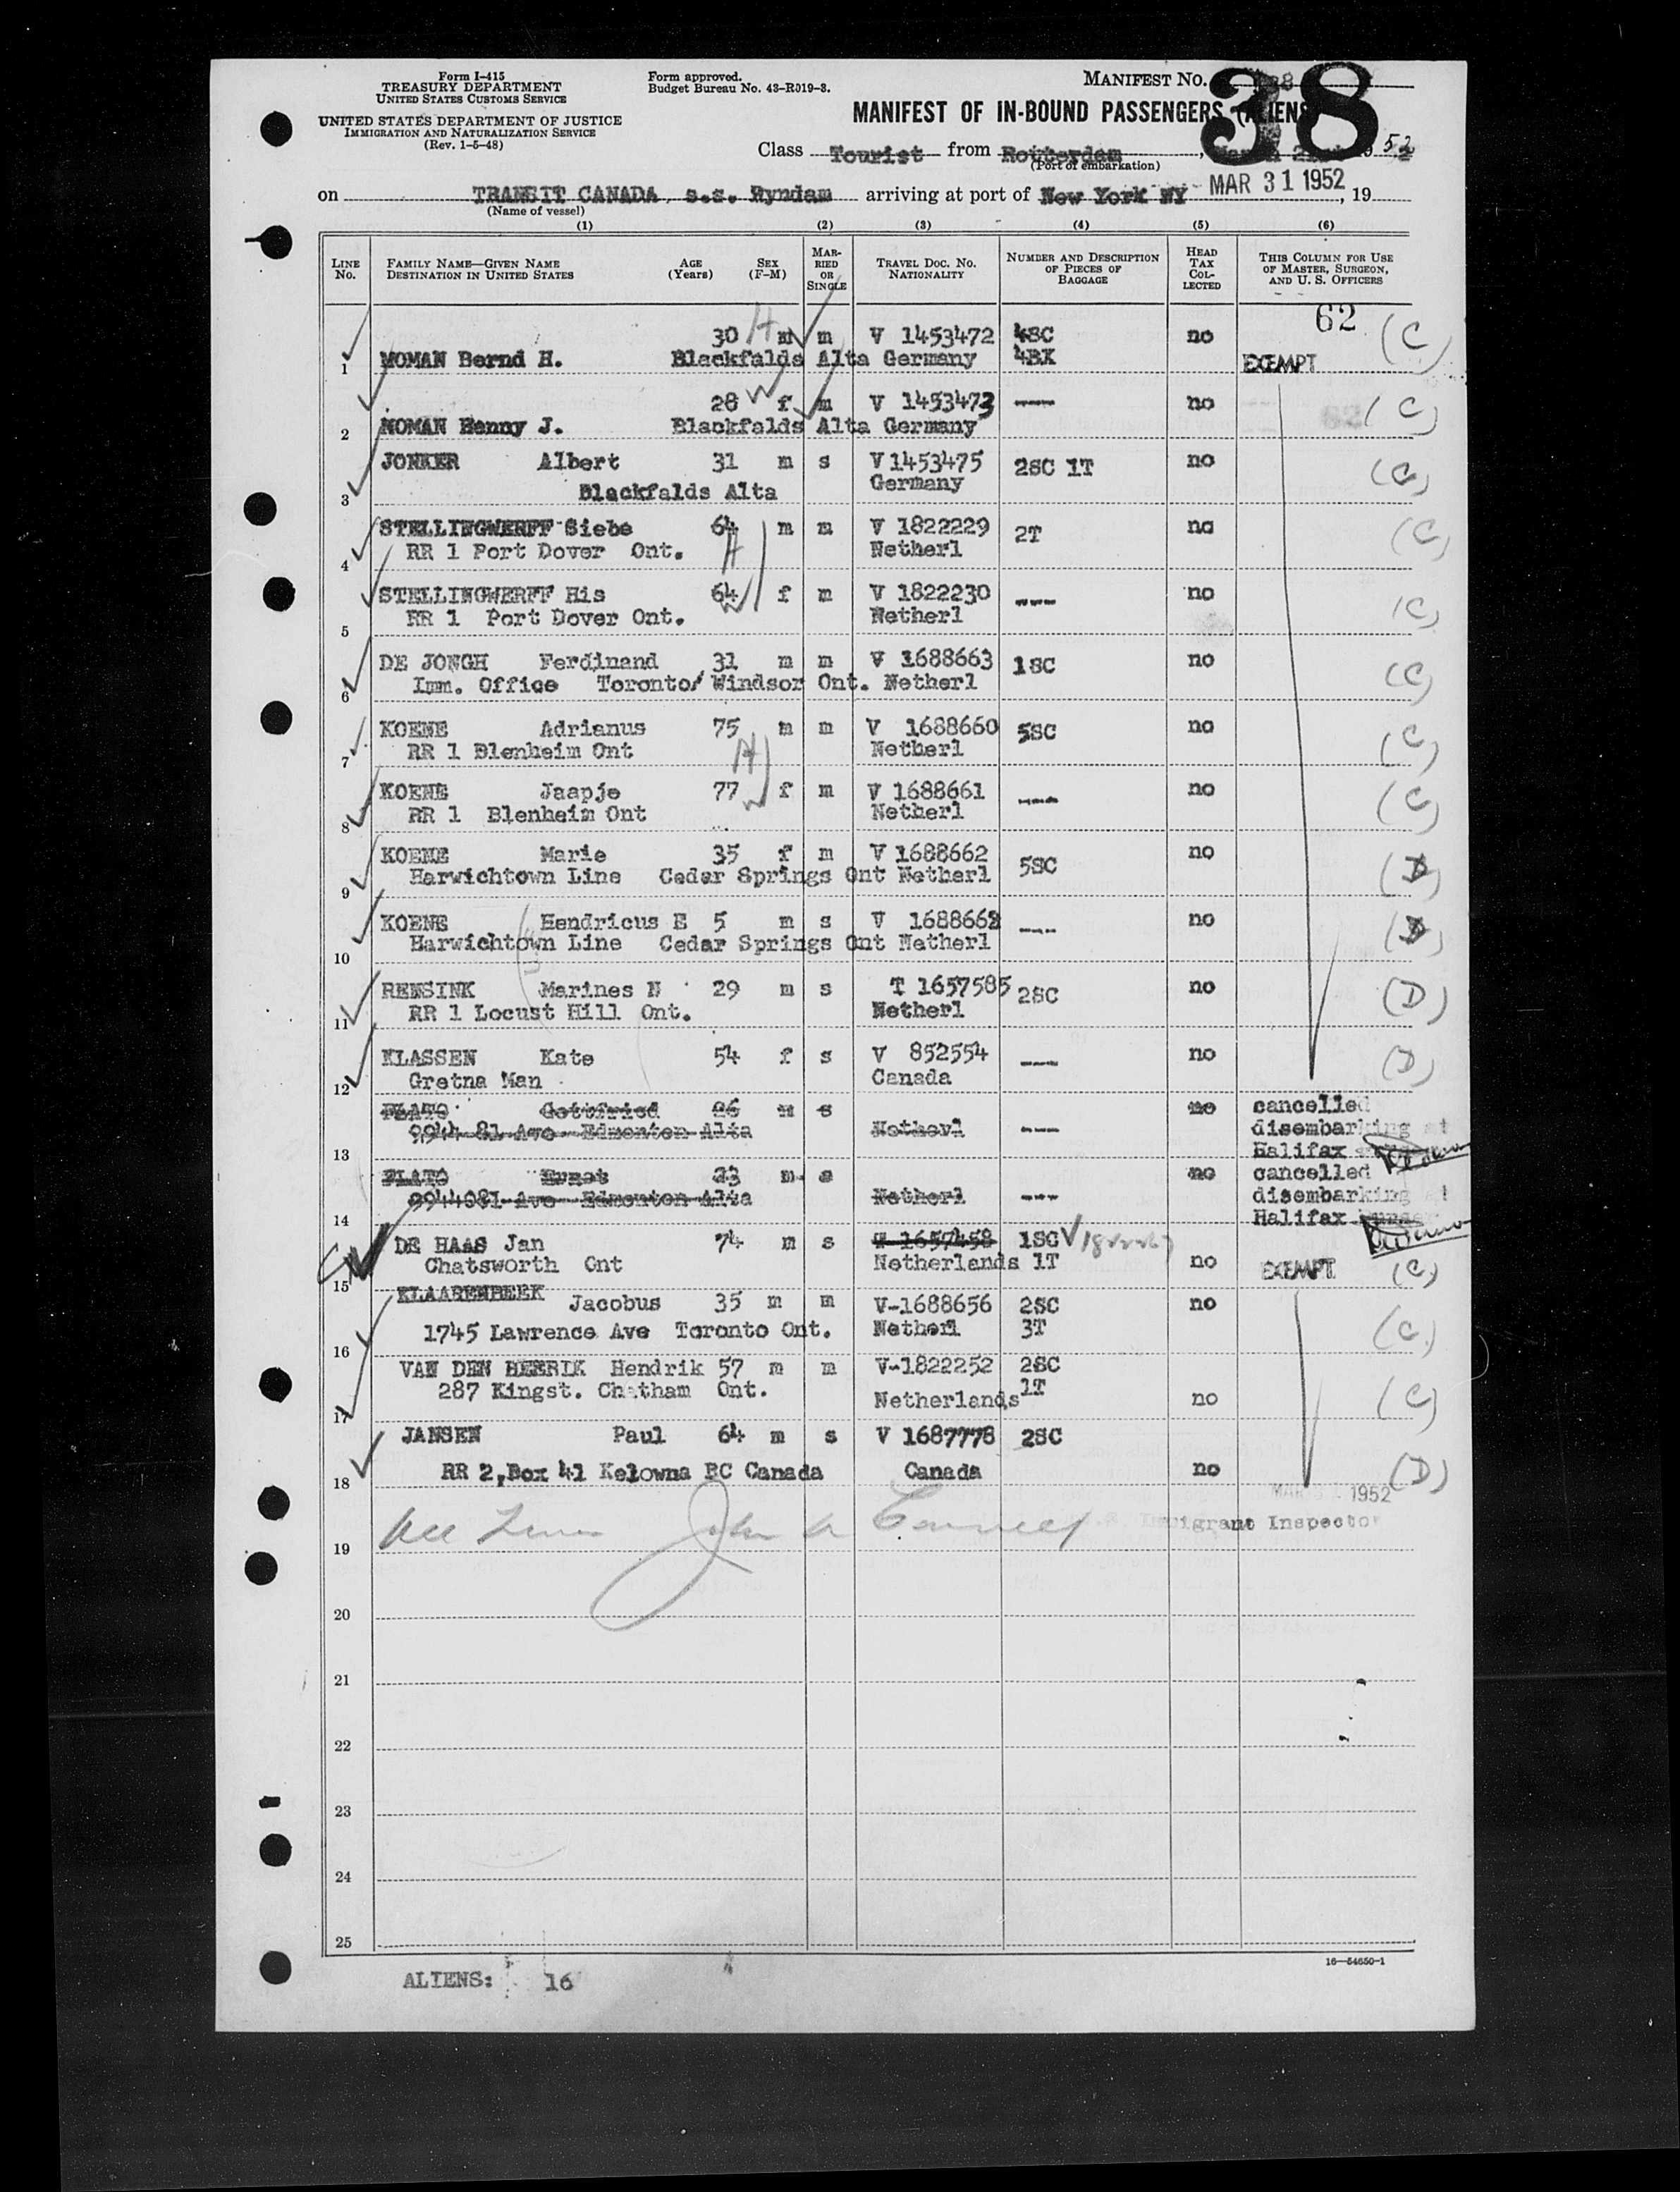 Form I-415
TREASURY DEPARTMENT
UNITED STATES CUSTOMS SERVICE
UNITED STATES DEPARTMENT OF JUSTICE
IMMIGRATION AND NATURALIZATION SERVICE
(Rev. 1-5-48)
Form approved.
Budget Bureau No. 43-R019-3.
MANIFEST NO. 38
MANIFEST OF IN-BOUND PASSENGERS (ALIENS)
Class Tourist from Rotterdam, 1952
(Port of embarkation)
on TRANSIT CANADA s.s. Ryndam arriving at port of New York NY MAR 31 1952, 19
(Name of vessel)
(1) (2) (3) (4) (5) (6)
LINE NO. FAMILY NAME—GIVEN NAME DESTINATION IN UNITED STATES AGE (Years) SEX (F-M) MARRIED OR SINGLE TRAVEL DOC. NO. NATIONALITY NUMBER AND DESCRIPTION OF PIECES OF BAGGAGE HEAD TAX COLLECTED THIS COLUMN FOR USE OF MASTER, SURGEON, AND U. S. OFFICERS
62
30 H m m V 1453472 4SC no (C)
1 MOMAN Bernd H. Blackfalds Alta Germany 4BX EXEMPT
28 W f m V 1453473 ---- no (C)
2 MOMAN Henny J. Blackfalds Alta Germany
JONKER Albert 31 m s V 1453475 2SC 1T no (C)
3 Blackfalds Alta Germany
STELLINGWERFF Siebe 64 m m V 1822229 2T no (C)
4 RR 1 Port Dover Ont. H Netherl
STELLINGWERFF His 64 f m V 1822230 ---- no (C)
5 RR 1 Port Dover Ont. W Netherl
DE JONGH Ferdinand 31 m m V 1688663 1SC no (C)
6 Imm. Office Toronto/ Windsor Ont. Netherl
KOENE Adrianus 75 m m V 1688660 5SC no (C)
7 RR 1 Blenheim Ont H Netherl
KOENE Jaapje 77 f m V 1688661 ---- no (C)
8 RR 1 Blenheim Ont W Netherl
KOENE Marie 35 f m V 1688662 5SC no (D)
9 Harwichtown Line Cedar Springs Ont Netherl
KOENE Hendricus E 5 m s V 1688662 ---- no (D)
10 Harwichtown Line Cedar Springs Ont Netherl
RENSINK Marines N 29 m s T 1657585 2SC no (D)
11 RR 1 Locust Hill Ont. Netherl
KLASSEN Kate 54 f s V 852554 ---- no (D)
12 Gretna Man Canada
PLATO Gottfried 26 m s no cancelled
9944 81 Ave Edmonton Alta Netherl --- disembarking at
13 Halifax
PLATO Ernst 23 m s no cancelled
9944081 Ave Edmonton Alta Netherl --- disembarking at
14 Halifax
DE HAAS Jan 74 m s T 1657458 1SC
15 Chatsworth Ont Netherlands 1T no EXEMPT (C)
KLAARENBEEK Jacobus 35 m m V-1688656 2SC no
16 1745 Lawrence Ave Toronto Ont. Netherl 3T (C)
VAN DEN HEERIK Hendrik 57 m m V-1822252 2SC
17 287 Kingst. Chatham Ont. Netherlands 1T no (C)
JANSEN Paul 64 m s V 1687778 2SC
18 RR 2, Box 41 Kelowna BC Canada Canada no (D)
MAR 1952
Immigrant Inspector
19
20
21
22
23
24
25
16—54650-1
ALIENS: 16